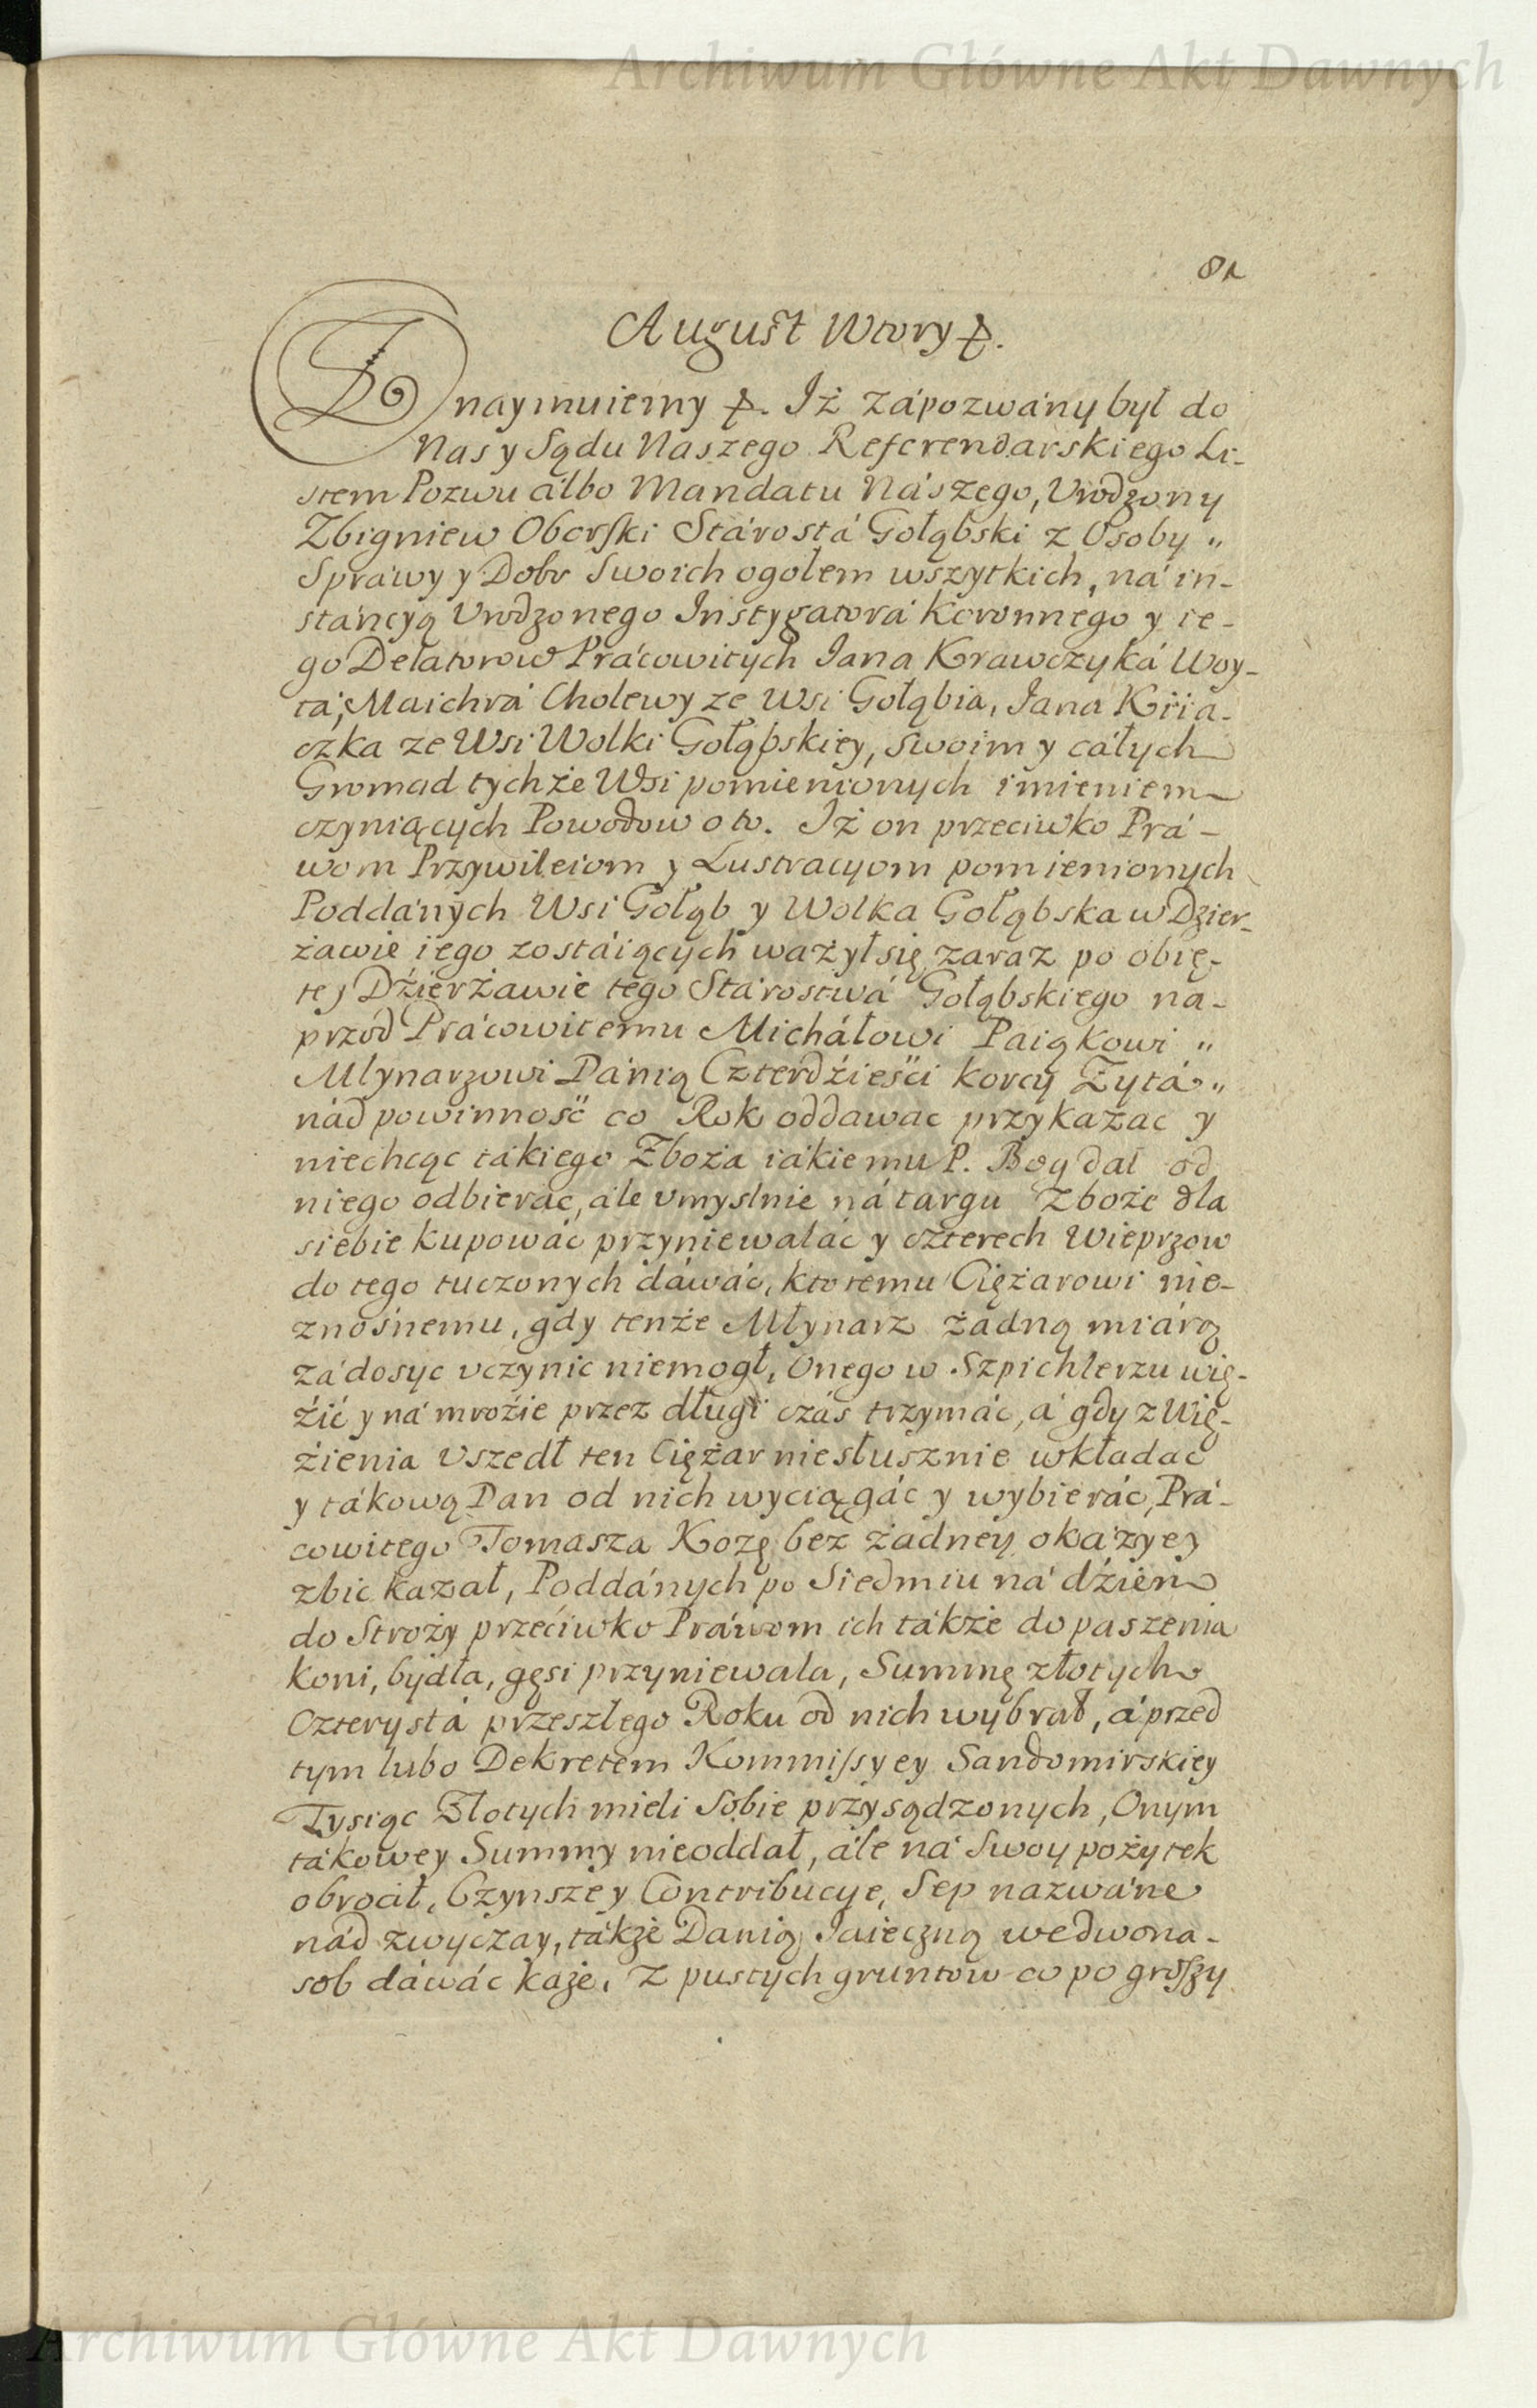 Archiwum Główne Akt Dawnych
81
August Wtory &.
Doznaymuiemy &. Iż zápozwány był do
Nas y Sądu Naszego Referendarskiego Li-
stem Pozwu álbo Mandatu Nászego, Vrodzony
Zbigniew Oborski Stárostá Gołąbski z Osoby "
Spráwy y Dobr Swoich ogołem wszytkich, ná in-
stáncyą Vrodzonego Instygatorá Koronnego y ie-
go Delatorow Prácowitych Iana Krawczyká Woy-
tá, Maichrá Cholewy ze Wsi Gołąbia, Iana Kiia-
czka ze Wsi Wolki Gołąbskiey, swoim y cáłych
Gromad tychże Wsi pomienionych imieniem
czyniących Powodow o to. Iż on przeciwko Prá-
wom Przywileiom y Lustracyom pomienionych
Poddánych Wsi Gołąb y Wolka Gołąbska w Dzier-
żawie iego zostáiących ważył się zaraz po obię-
tej Dźierżawie tego Stárostwá Gołąbskiego na-
przod Prácowitemu Micháłowi Paiąkowi "
Młynarzowi Dánią Czterdźieśći korcy Żytá "
nád powinność co Rok oddawac przykazac y
niechcąc tákiego Zboża iákiemu P. Bog dał od
niego odbierac, ále vmyslnie ná targu Zboże dla
siebie kupowáć przyniewaláć y czterech Wieprzow
do tego tuczonych dáwáć, ktoremu Ciężarowi nie-
znośnemu, gdy tenże Młynarz żadną miárą
zádosyc vczynic niemogł, Onego w Szpichlerzu wię-
źić y ná mroźie przez długi czás trzymáć, á gdy z Wię-
źienia Vszedł ten Ciężar niesłusznie wkładać
y tákową Dan od nich wyciągáć y wybieráć, Prá-
cowitego Tomasza Kozę bez żadney okázyey
zbic kazał, Poddánych po Siedmiu ná dźień
do Stroży przećiwko Práwom ich tákże do paszenia
koni, bydła, gęsi przyniewala, Summę złotych
Czterystá przeszłego Roku od nich wybrał, á przed
tym lubo Dekretem Kommissyey Sandomirskiey
Tysiąc Złotych mieli Sobie przysądzonych, Onym
tákowey Summy nieoddał, ále ná Swoy pożytek
obrocił, Czynsze y Contribucye, Sep nazwáne
nád zwyczay, tákże Danią Iaieczną wedwona-
sob dáwáć każe, Z pustych gruntow co po groszy
Archiwum Główne Akt Dawnych